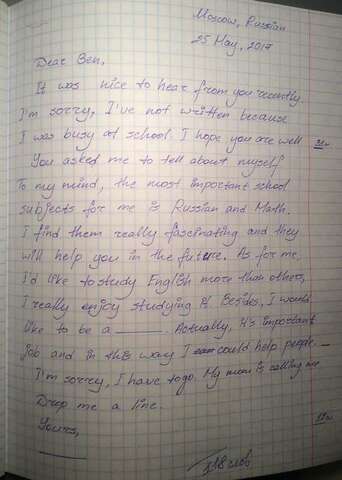 Moscow, Russian
25 May, 2017
Dear Ben,
It was nice to hear from you recently.
I'm sorry, I've not written because
I was busy at school. I hope you are well
You asked me to tell about myself
To my mind, the most important school
subjects for me is Russian and Math.
I find them really fascinating and they
will help you in the future. As for me,
I'd like to study English more than others,
I really enjoy studying it. Besides, I would
like to be a ______. Actually, it's important
job and in this way I could help people.
I'm sorry, I have to go. My mom is calling me
Drop me a line.
Yours,
______